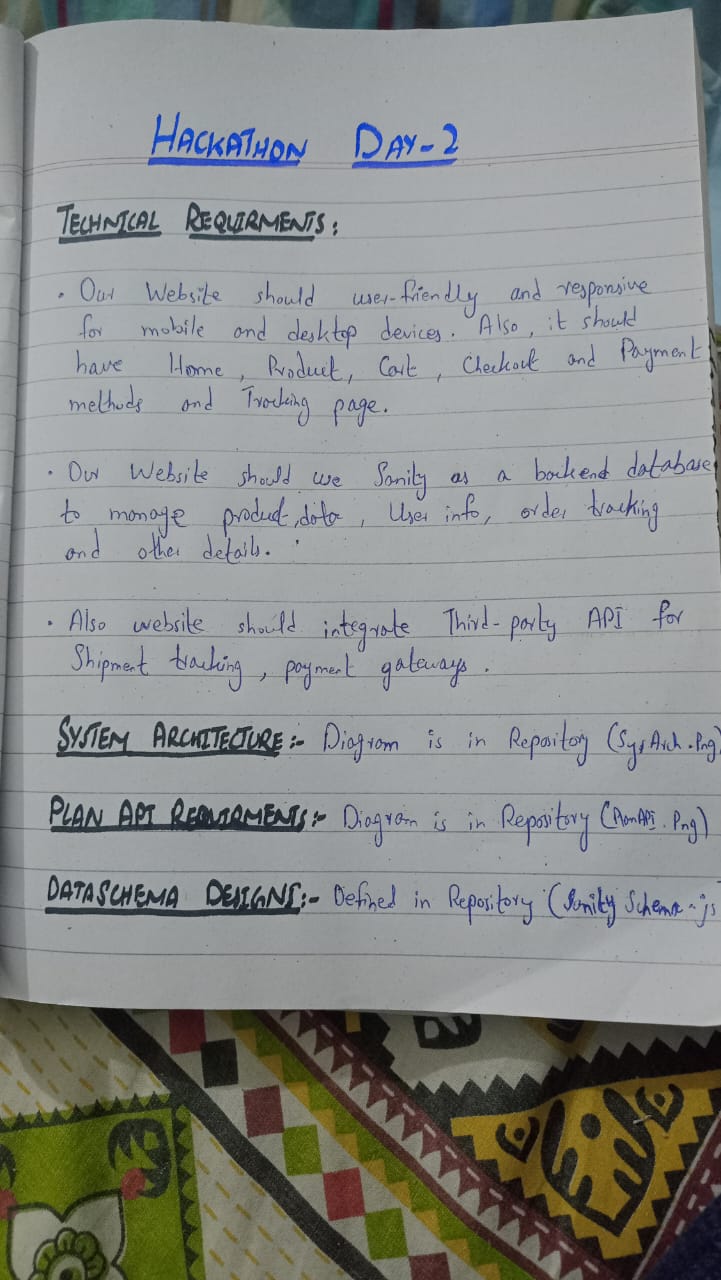 HACKATHON DAY-2
TECHNICAL REQUIRMENTS:
• Our Website should user-friendly and responsive
for mobile and desktop devices. Also, it should
have Home, Product, Cart, Checkout and Payment
methods and Tracking page.
• Our Website should use Sanity as a backend database
to manage product, data, User info, order tracking
and other details.
• Also website should integrate Third-party API for
Shipment tracking, payment gateways.
SYSTEM ARCHITECTURE:- Diagram is in Repository (SysArch.Png)
PLAN API REQUIRMENTS:- Diagram is in Repository (PlanAPI.Png)
DATA SCHEMA DESIGNS:- Defined in Repository (Sanity Schema-js